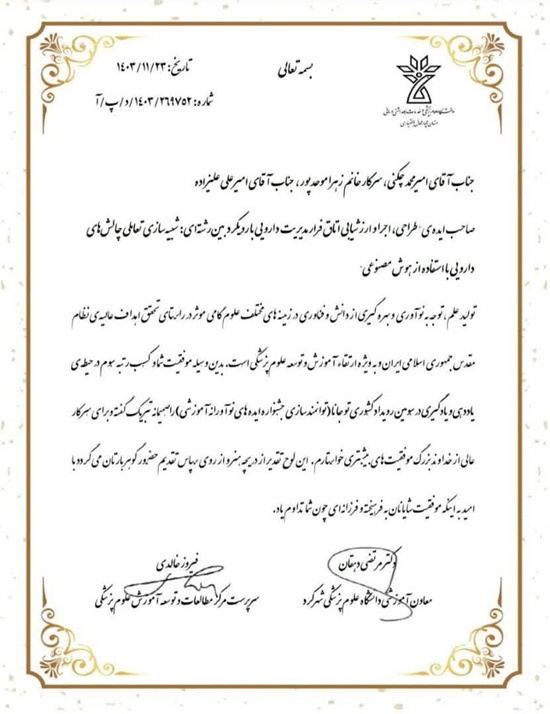 بسمه تعالی
تاریخ: ۱۴۰۳/۱۱/۲۳
شماره: ۱۴۰۳/۲۶۹۷۵۲/د/پ/آ
جناب آقای امیرمحمد چکنی، سرکار خانم زهرا موحدپور، جناب آقای امیرعلی علیزاده
صاحب ایده‌ی "طراحی، اجرا و ارزشیابی اتاق فرار مدیریت دارویی با رویکرد بین رشته‌ای: شبیه سازی تعاملی چالش‌های
دارویی با استفاده از هوش مصنوعی"
تولید علم، توجه به نوآوری و بهره گیری از دانش و فناوری در زمینه های مختلف علوم گامی موثر در راستای تحقق اهداف عالیه‌ی نظام
مقدس جمهوری اسلامی ایران و به ویژه ارتقاء آموزش و توسعه علوم پزشکی است. بدین وسیله موفقیت شما و کسب رتبه سوم در حیطه‌ی
یاددهی و یادگیری در سومین رویداد کشوری توجانا (توانمندسازی جشنواره ایده های نوآورانه آموزشی) را صمیمانه تبریک گفته و برای سرکار
عالی از خداوند بزرگ موفقیت های بیشتری خواستارم. این لوح تقدیر از دریچه هنر و از روی سپاس تقدیم حضور گوهربارتان می گردد با
امید به اینکه موفقیت شایانتان به فرهیخته و فرزانه‌ای چون شما تداوم یابد.
دکتر مرتضی دهقان
معاون آموزشی دانشگاه علوم پزشکی شهرکرد
فیروز خالدی
سرپرست مرکز مطالعات و توسعه آموزش علوم پزشکی